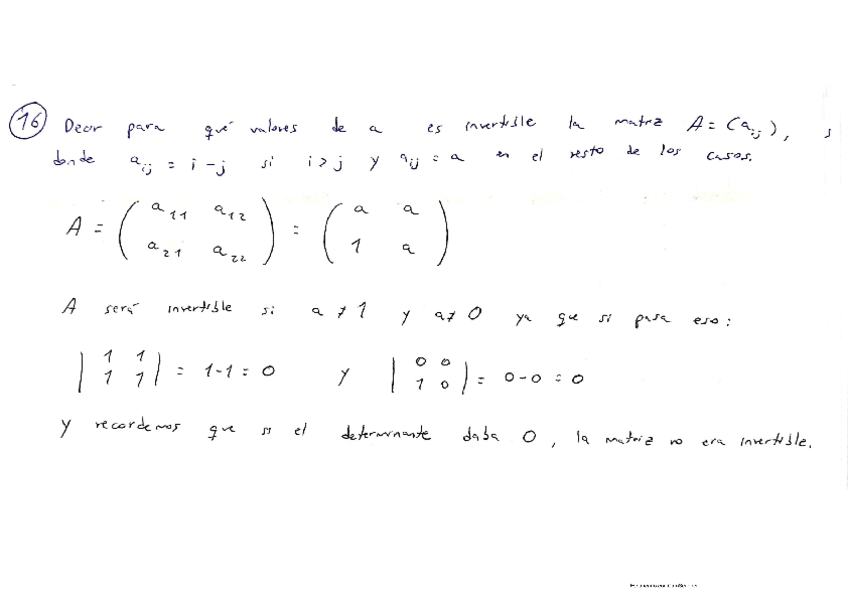 16 Decir para qué valores de a es invertible la matriz A = (a_ij), s
donde a_ij = i - j si i > j y a_ij = a en el resto de los casos.
A = ( a_11 a_12 ) = ( a a )
( a_21 a_22 ) ( 1 a )
A será invertible si a ≠ 1 y a ≠ 0 ya que si pasa eso:
| 1 1 | = 1-1 = 0 y | 0 0 | = 0-0 = 0
| 1 1 | | 1 0 |
y recordemos que si el determinante daba 0, la matriz no era invertible.